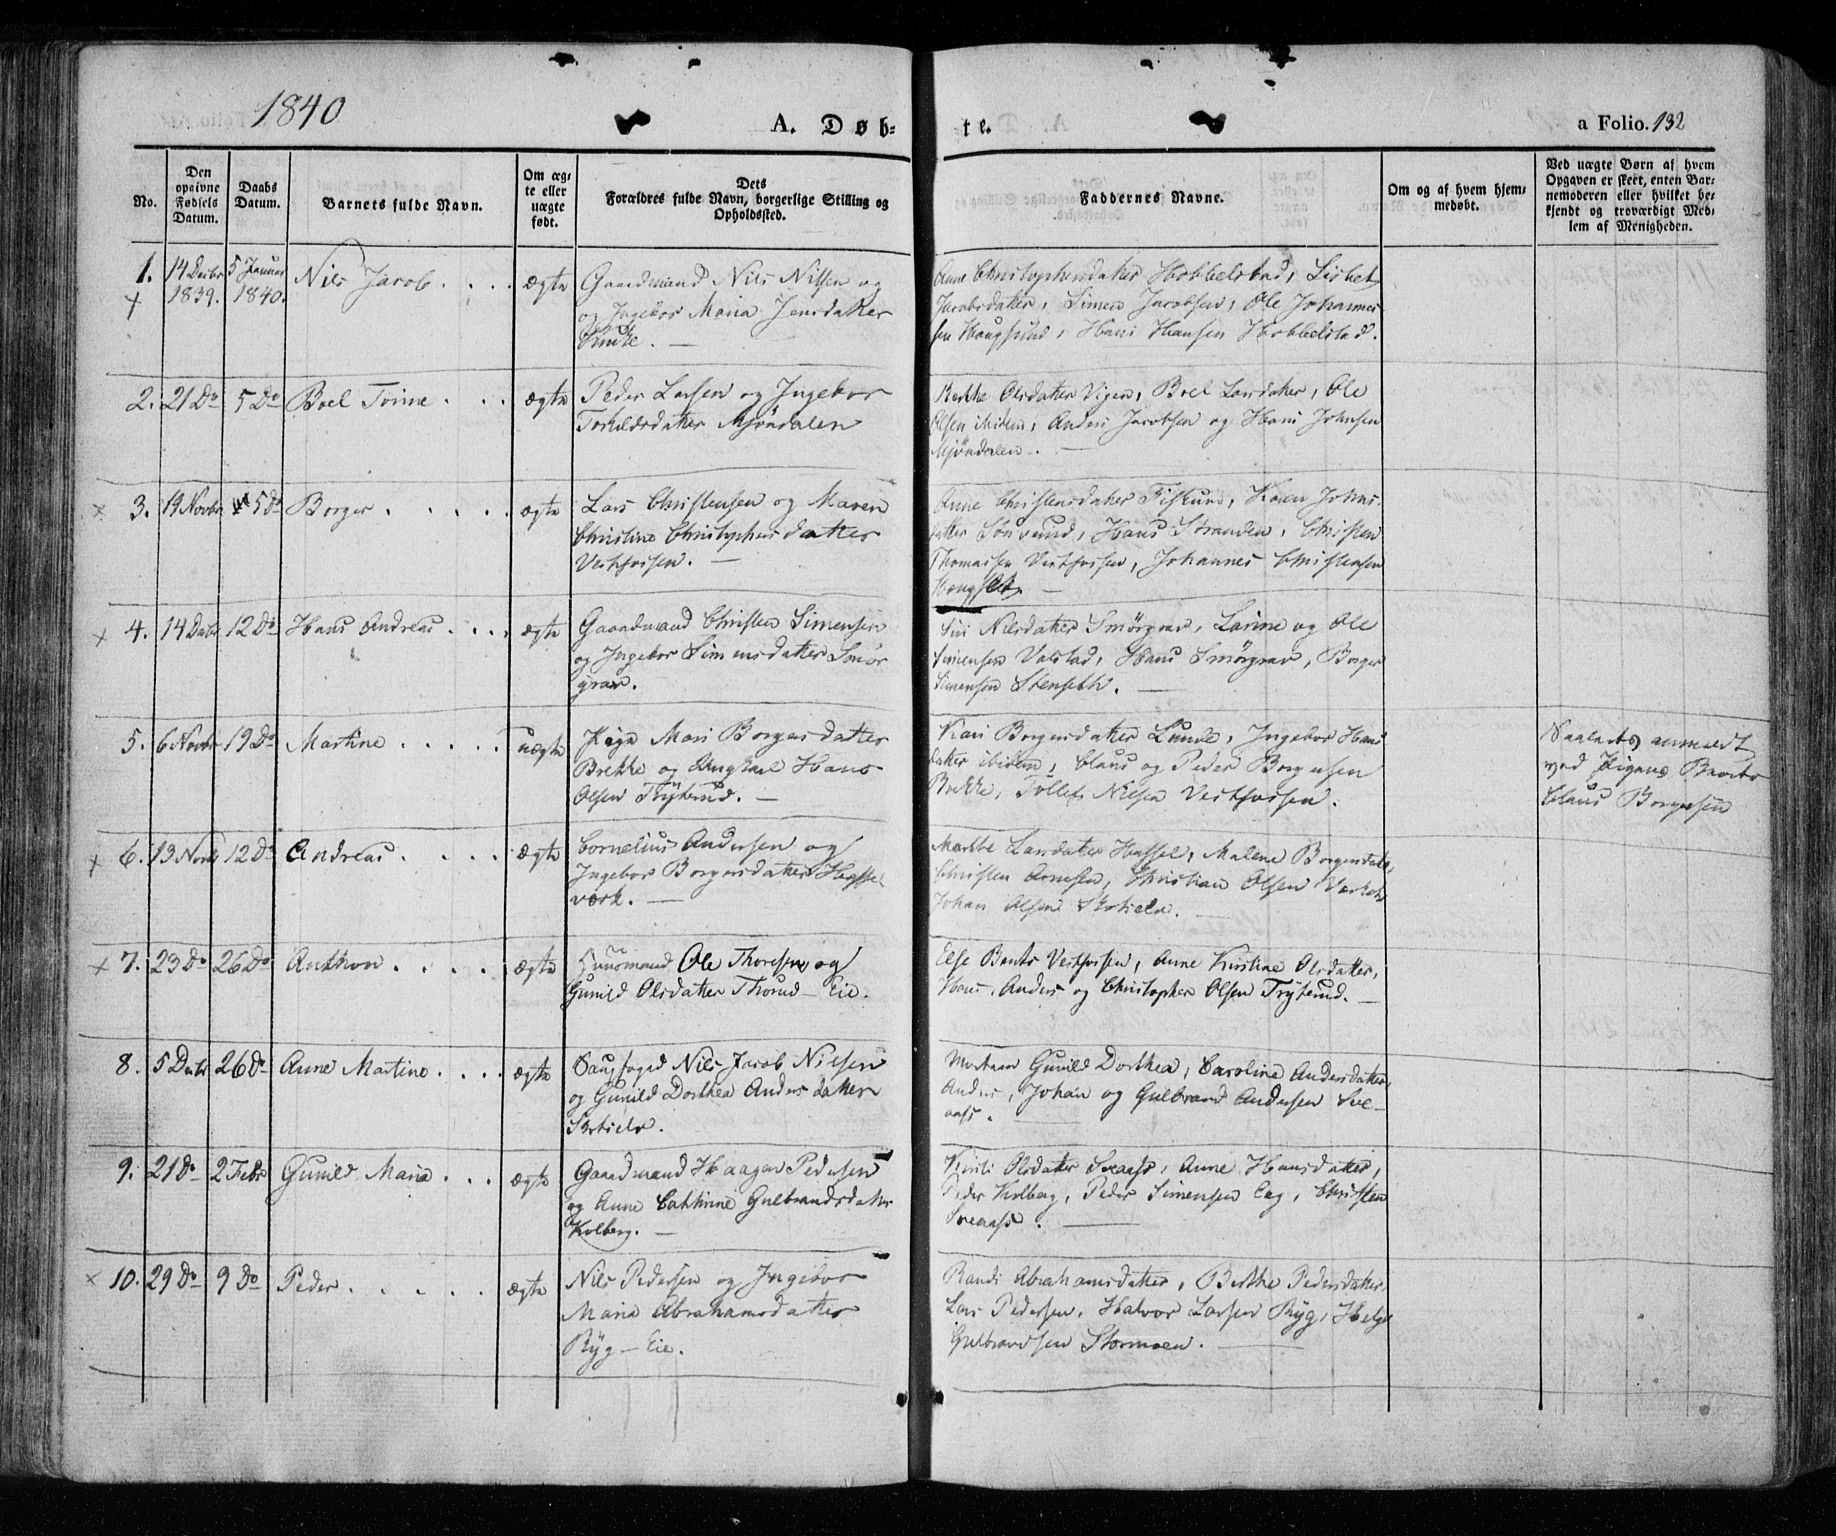 1840
A. Døb-
te.
a Folio. 132
No.
Den opgivne Fødsels Datum.
Daabs Datum.
Barnets fulde Navn.
Om ægte eller uægte født.
Dets Forældres fulde Navn, borgerlige Stilling og Opholdssted.
Faddernes Navne.
Om og af hvem hjemmedøbt.
Ved uægte Børn af hvem Opgaven er skeet, enten Barnemoderen eller hvilket bekjendt og troværdigt Medlem af Menigheden.
1. 14 Decbr 5 Januar Nils Jacob ægte Gaardmand Nils Nilsen og
1839. 1840.
og Ingebor Maria Jensdatter
Anne Christophersdatter Hobbelstad, Lisbet
Jacobsdatter, Simen Jacobsen, Ole Johannes-
sen Haugsund, Hans Hansen Hobbelstad.
2. 21 Do 5 Do Boel Torine ægte Peder Larsen og Ingebor
Torkildsdatter Mjøndalen
Berthe Olsdatter Vigen, Boel Larsdatter, Ole
Olsen ibidem, Anders Jacobsen og Hans Johnsen
Mjøndalen.
3. 19 Novbr 5 Do Borger ægte Lars Christensen og Maren
Christine Christophersdatter
Vestfossen.
Anne Christensdatter Fiskum, Karen Johns-
datter, Hans Stranden, Christen
Thomassen Vestfossen, Johannes Christensen
4. 14 Decbr 12 Do Hans Andreas ægte Gaardmand Christen Simensen
og Ingebor Simensdatter Smør-
grav.
Siri Nilsdatter Smørgrav, Larine og Ole
Simensen Valstad, Hans Smørgrav, Borger
Simensen Stenseth.
5. 6 Novbr 19 Do Martine uægte Pige Mari Borgersdatter
Brekke og Ungkarl Hans
Olsen Trÿterud.
Kari Borgersdatter Lunde, Ingebor Hans-
datter ibidem, Claus og Peder Borgersen
Brekke, Tollef Nilsen Vestfossen.
anmeldt
ved Pigens Broder
Claus Borgersen
6. 13 Novbr 12 Do Andreas ægte Cornelius Andersen og
Ingebor Borgersdatter Hassel-
værk.
Marthe Larsdatter Hassel, Malene Borgersdatter,
Christen Arnesen, Christian Olsen Værket
Johan Olsen Skotselv.
7. 23 Do 26 Do Anthon ægte Huusmand Ole Thoresen og
Gunild Olsdatter Thorud-Eie.
Else Bents Vestfossen, Anne Kirstine Olsdatter,
Hans, Anders og Christopher Olsen Trÿterud.
8. 5 Decbr 26 Do Anne Martine ægte Saugfoged Nils Jacob Nilsen
og Gunild Dorthea Andersdatter
Skotselv.
Moderen Gunild Dorthea, Caroline Andersdatter,
Anders, Johan og Gulbrand Andersen Sve-
aass.
9. 21 Do 2 Febr Gunild Maria ægte Gaardmand Haagen Pedersen
og Anne Cathrine Gulbrandsdatter
Kolberg.
Kirsti Olsdatter Sveaass, Anne Hansdatter,
Peder Kolberg, Peder Simensen Eeg, Christen
Sveaass.
10. 29 Do 9 Do Peder ægte Nils Pedersen og Ingebor
Maria Abrahamsdatter
Rÿg-Eie.
Randi Abrahamsdatter, Berthe Pedersdatter,
Lars Pedersen, Halvor Larsen Rÿg, Helge
Gulbrandsen Stormoen.